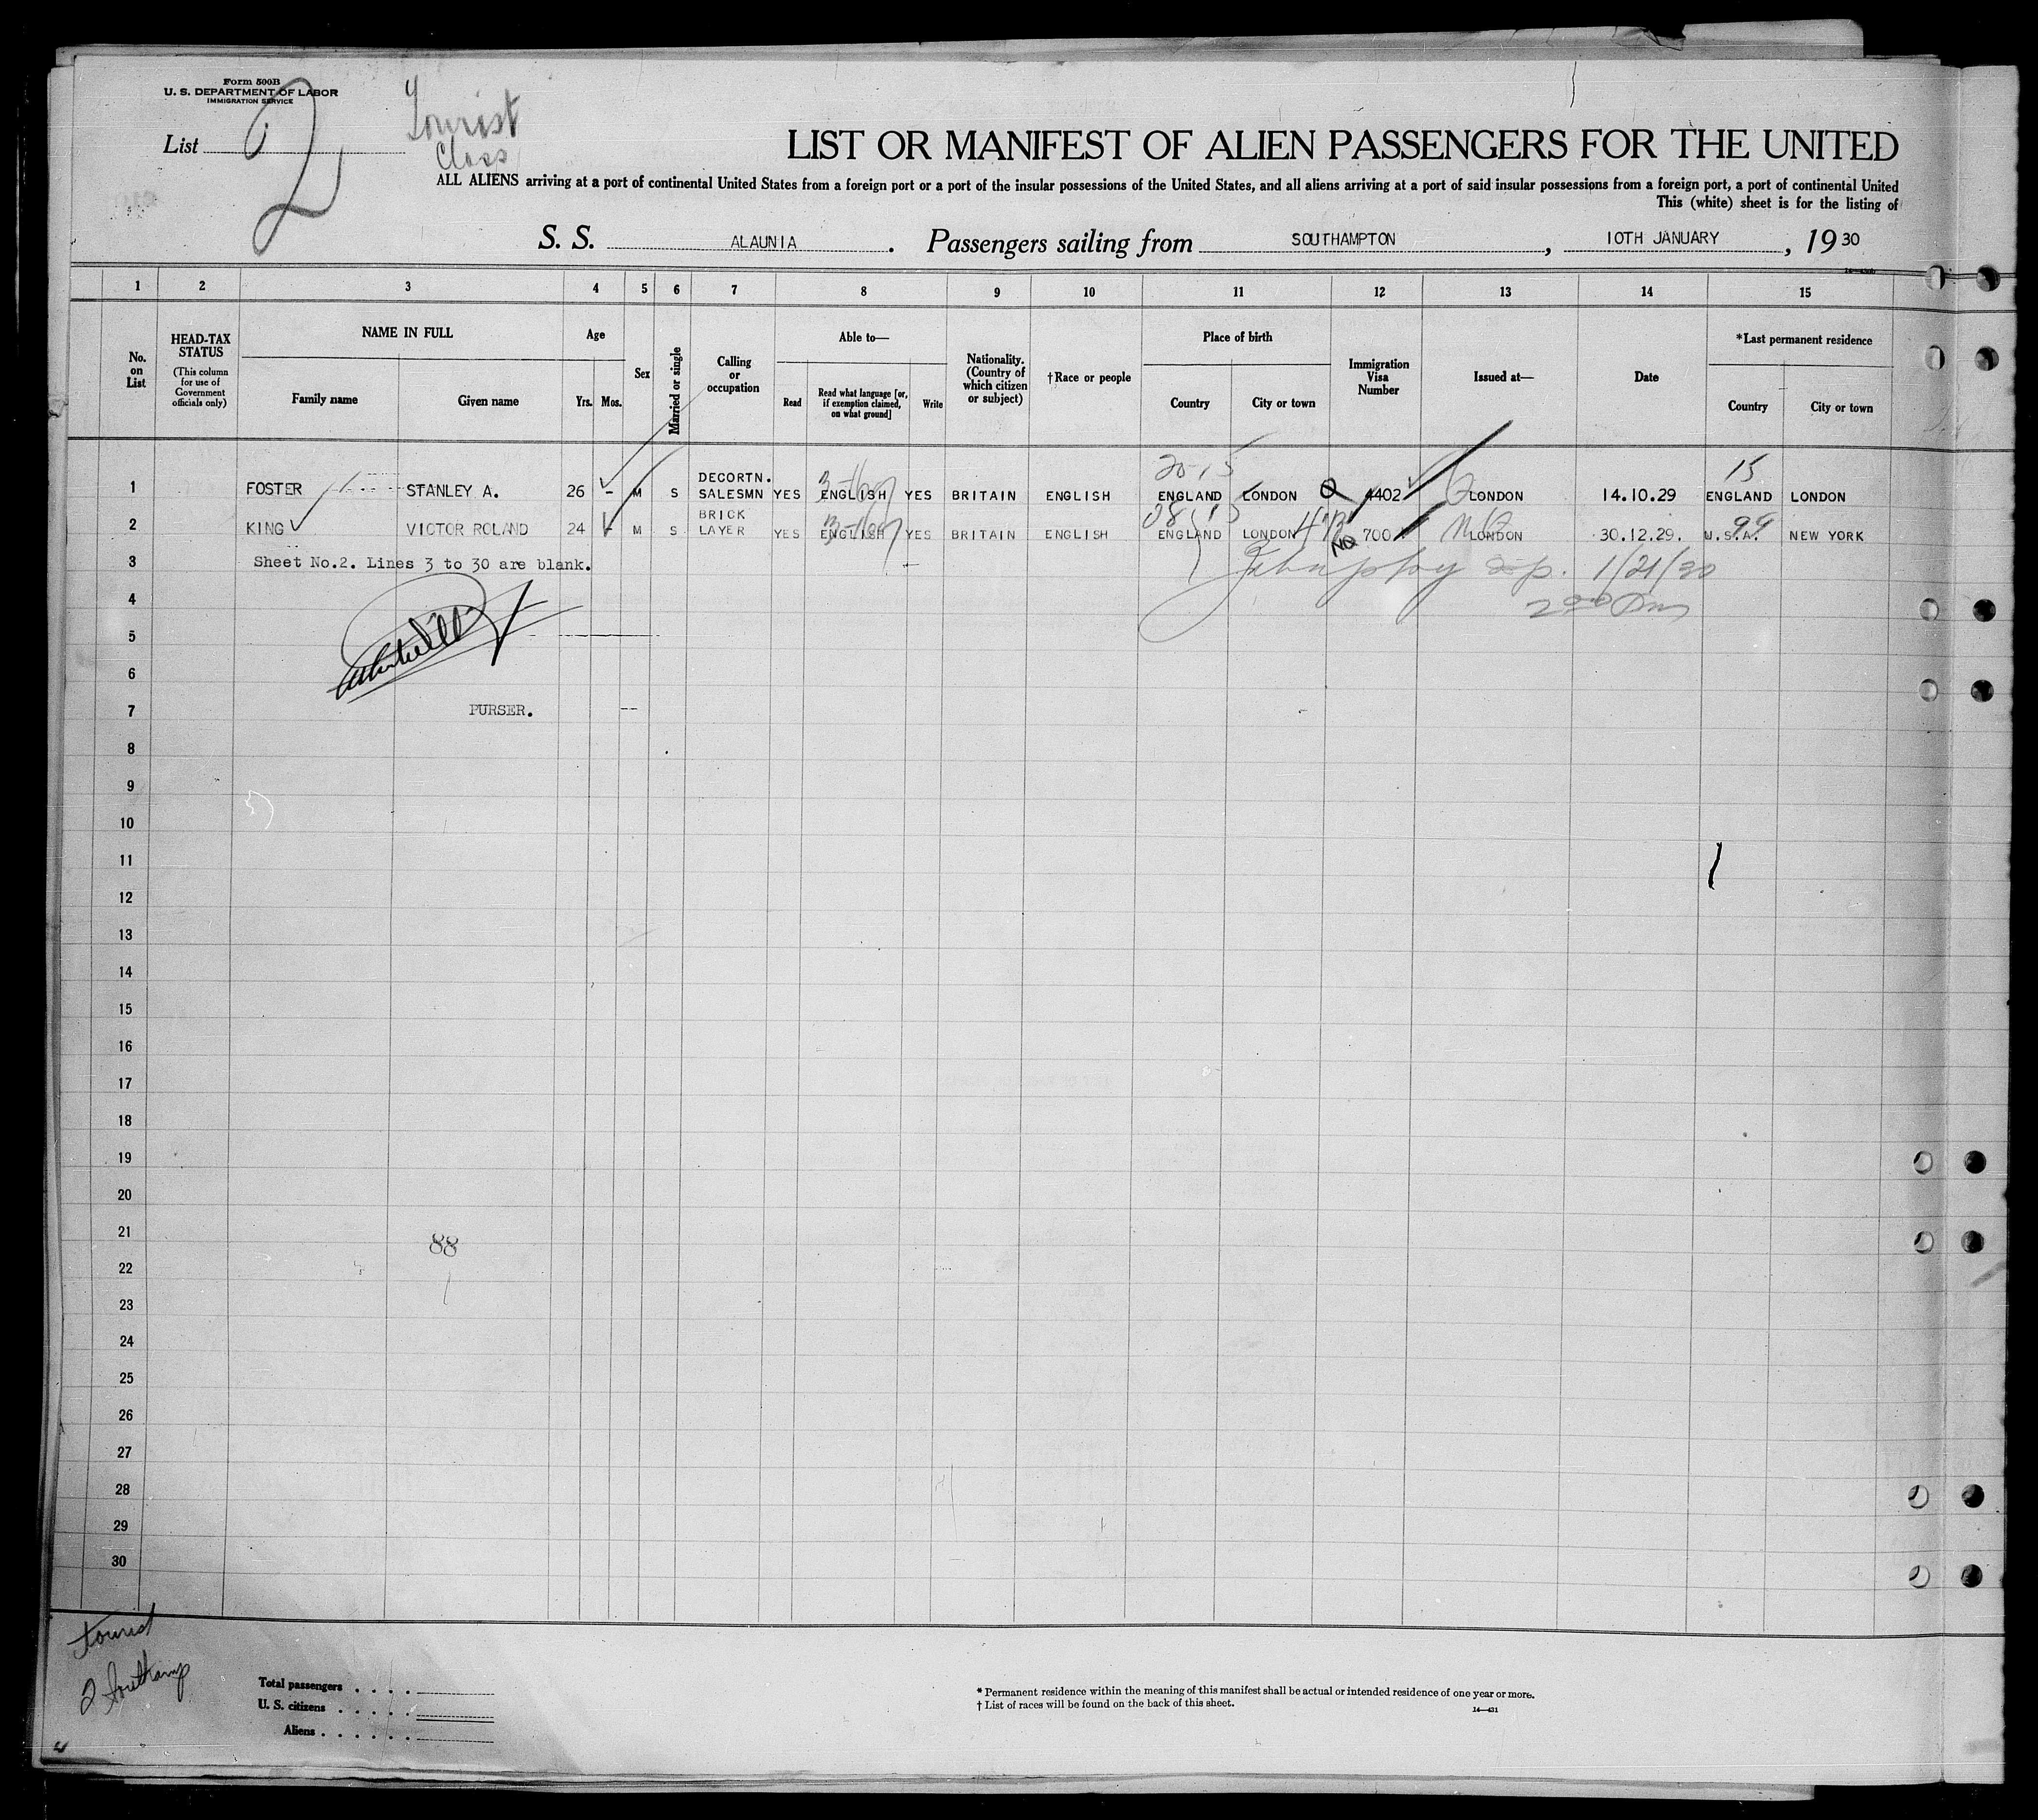 Form 500B
U. S. DEPARTMENT OF LABOR
IMMIGRATION SERVICE
List 2
Tourist
Class
LIST OR MANIFEST OF ALIEN PASSENGERS FOR THE UNITED
ALL ALIENS arriving at a port of continental United States from a foreign port or a port of the insular possessions of the United States, and all aliens arriving at a port of said insular possessions from a foreign port, a port of continental United
This (white) sheet is for the listing of
S. S. ALAUNIA. Passengers sailing from SOUTHAMPTON, 10TH JANUARY, 1930
1 2 3 4 5 6 7 8 9 10 11 12 13 14 15
No. on List
HEAD-TAX STATUS
(This column for use of Government officials only)
NAME IN FULL
Family name Given name
Age
Yrs. Mos.
Sex
Married or single
Calling or occupation
Able to—
Read Read what language [or, if exemption claimed, on what ground] Write
Nationality. (Country of which citizen or subject)
†Race or people
Place of birth
Country City or town
Immigration Visa Number
Issued at—
Date
*Last permanent residence
Country City or town
20-15 15
1 FOSTER STANLEY A. 26 - M S DECORTN. SALESMN YES ENGLISH YES BRITAIN ENGLISH ENGLAND LONDON Q 4402 LONDON 14.10.29 ENGLAND LONDON
2 KING VICTOR ROLAND 24 - M S BRICK LAYER YES ENGLISH YES BRITAIN ENGLISH ENGLAND LONDON NQ 700 LONDON 30.12.29. U.S.A. 99 NEW YORK
3 Sheet No.2. Lines 3 to 30 are blank.
1/21/30
4
5
6
7 PURSER.
8
9
10
11
12
13
14
15
16
17
18
19
20
21 88
22
23
24
25
26
27
28
29
30
Tourist
2 Southamp
Total passengers . . . .
U. S. citizens . . . . .
Aliens . . . . . .
* Permanent residence within the meaning of this manifest shall be actual or intended residence of one year or more.
† List of races will be found on the back of this sheet.
14—431